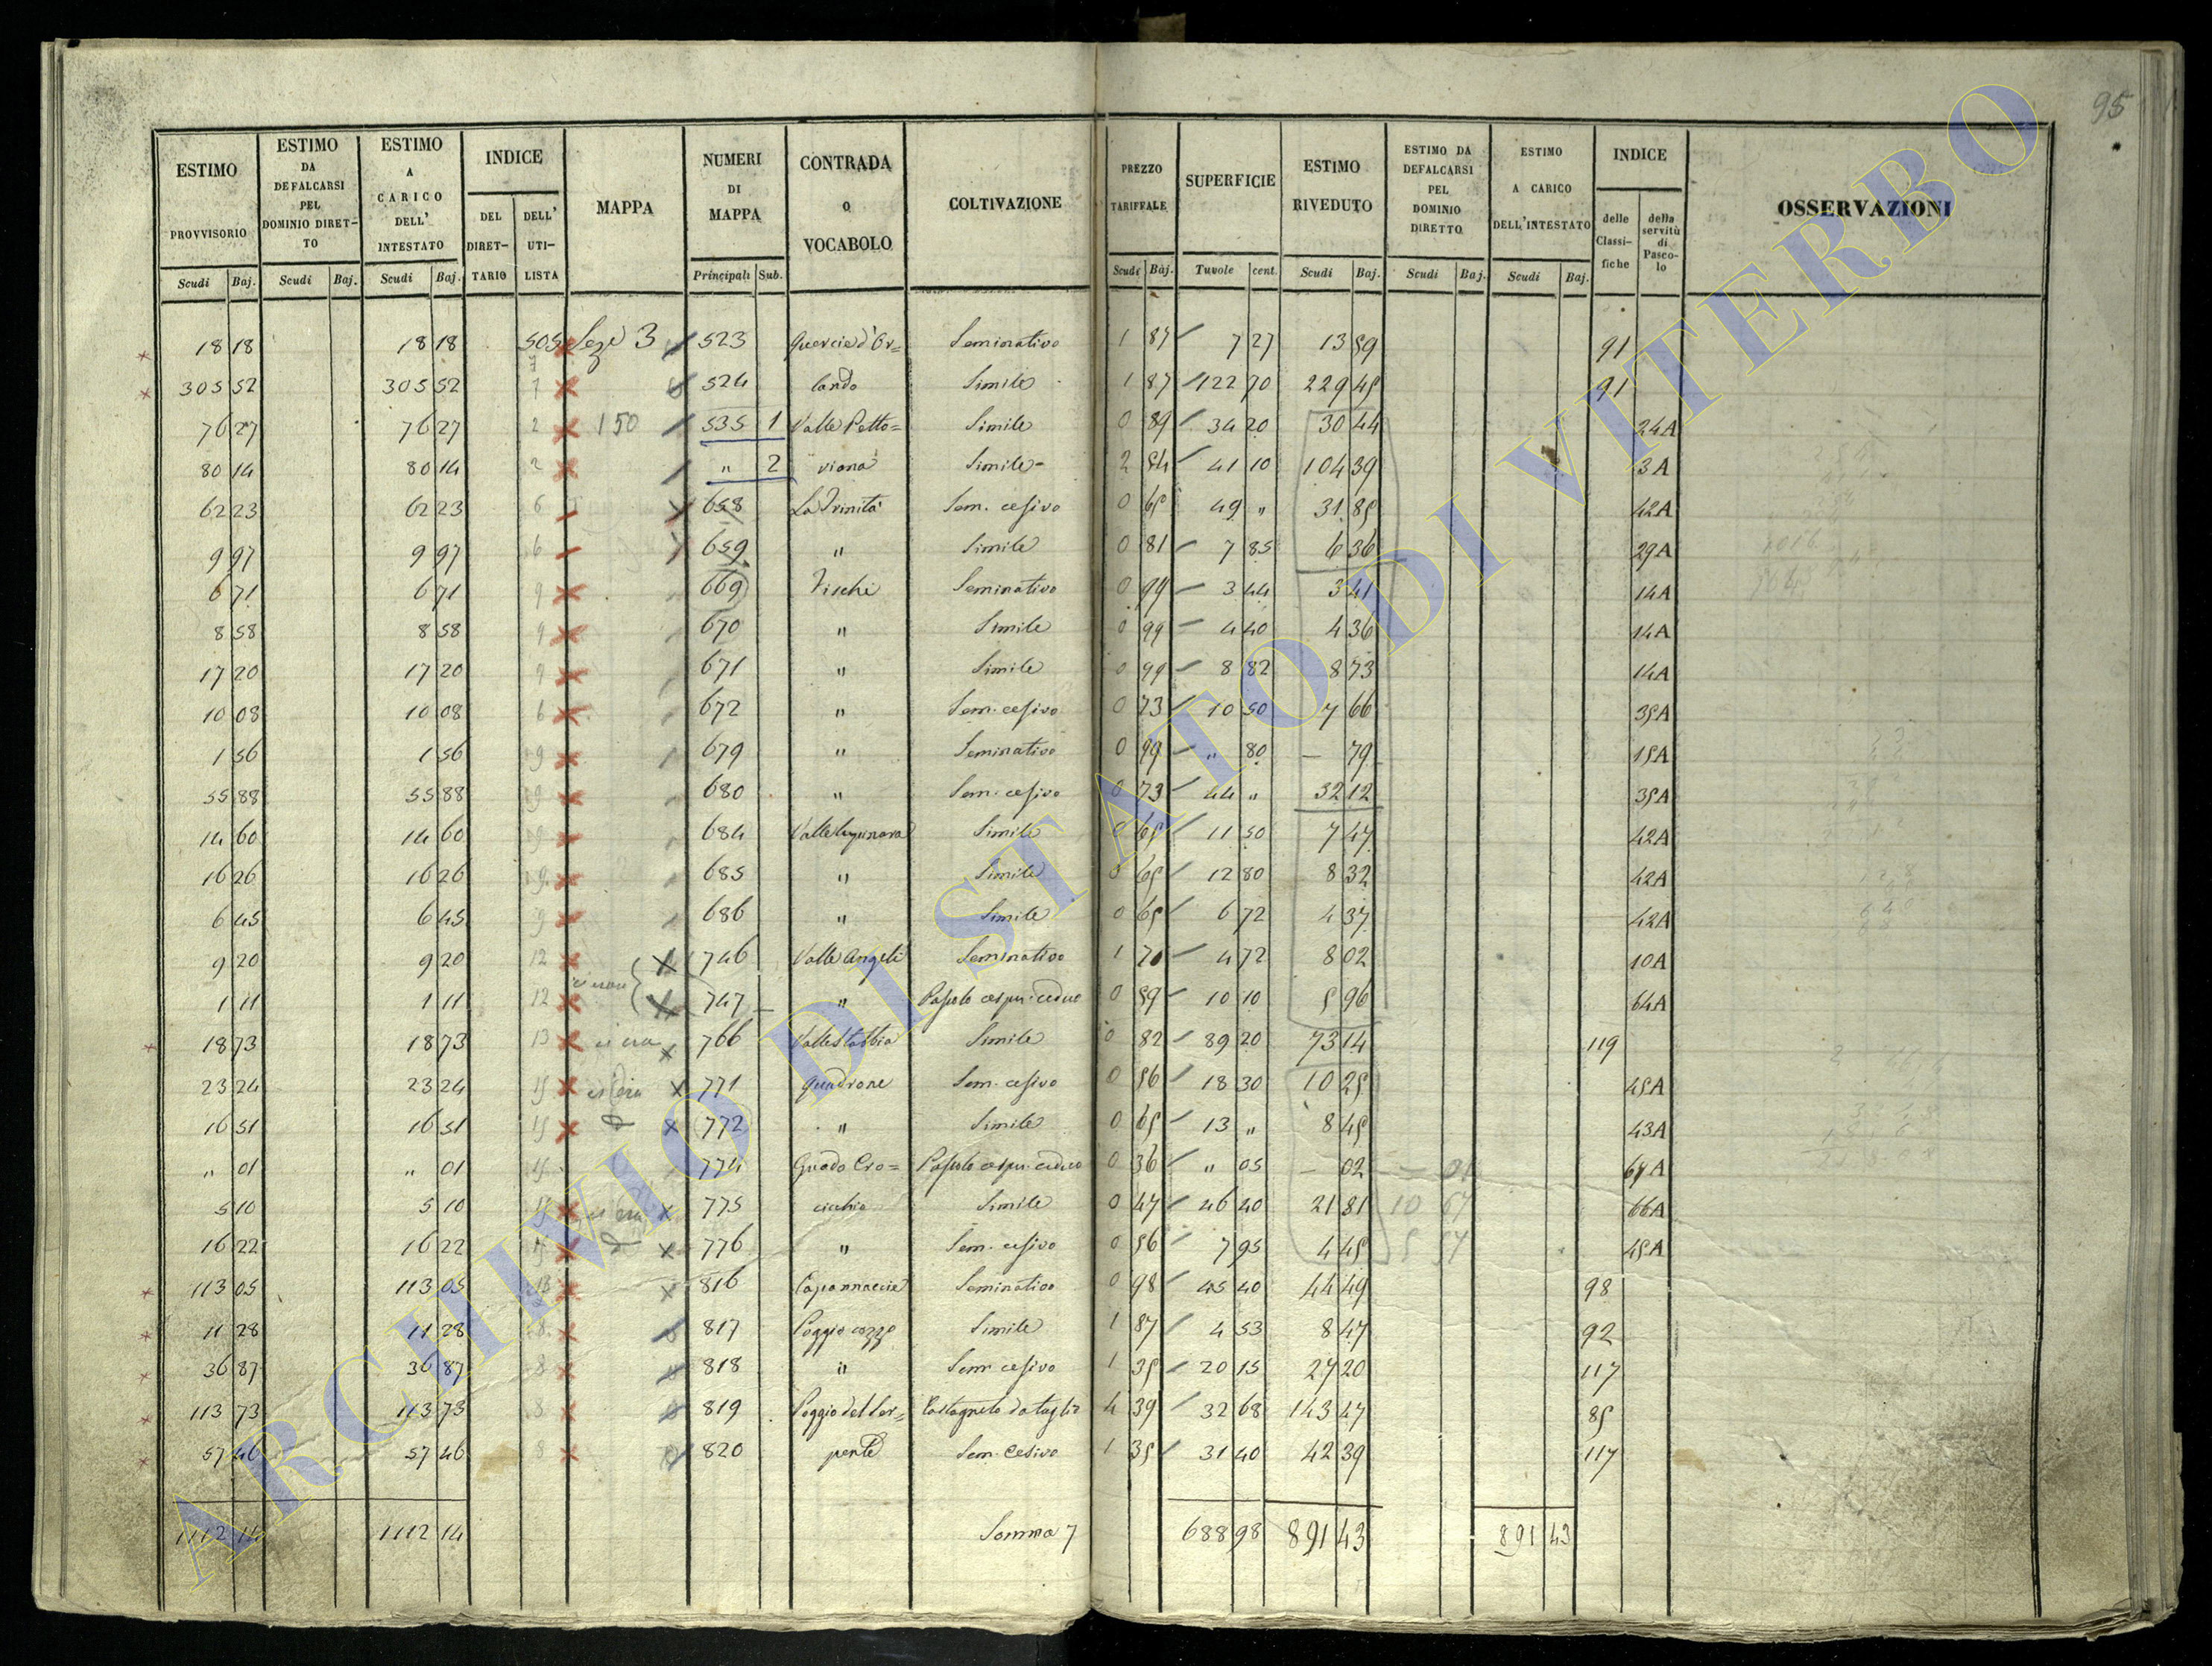 95
ESTIMO PROVVISORIO | ESTIMO DA DEFALCARSI PEL DOMINIO DIRET-TO | ESTIMO A CARICO DELL' INTESTATO | INDICE DEL DIRET-TARIO | DELL' UTI-LISTA | MAPPA | NUMERI DI MAPPA | CONTRADA O VOCABOLO | COLTIVAZIONE | PREZZO TARIFFALE | SUPERFICIE | ESTIMO RIVEDUTO | ESTIMO DA DEFALCARSI PEL DOMINIO DIRETTO | ESTIMO A CARICO DELL'INTESTATO | INDICE delle Classi-fiche | della servitù di Pasco-lo | OSSERVAZIONI
Scudi Baj. | Scudi Baj. | Scudi Baj. | Principali Sub. | Scudi Baj. | Tuvole cent. | Scudi Baj. | Scudi Baj. | Scudi Baj.
18 18 | 18 18 | 505 | Sez. 3 | 523 | Quercia d'Or= | Seminativo | 1 87 | 7 27 | 13 59 | 91
305 52 | 305 52 | 7 | 524 | lando | Simile | 1 87 | 122 70 | 229 45 | 91
76 27 | 76 27 | 2 | 150 | 535 1 | Valle Petto= | Simile | 0 89 | 34 20 | 30 44 | 24A
80 14 | 80 14 | 2 | " 2 | viana | Simile | 2 54 | 41 10 | 104 39 | 3A
62 23 | 62 23 | 6 | 658 | La Trinità | Sem. cesivo | 0 65 | 49 " | 31 85 | 42A
9 97 | 9 97 | 6 | 659 | " | Simile | 0 81 | 7 85 | 6 36 | 29A
6 71 | 6 71 | 9 | 669 | Fischi | Seminativo | 0 99 | 3 44 | 3 41 | 14A
8 58 | 8 58 | 9 | 670 | " | Simile | 0 99 | 4 40 | 4 36 | 14A
17 20 | 17 20 | 9 | 671 | " | Simile | 0 99 | 8 82 | 8 73 | 14A
10 08 | 10 08 | 6 | 672 | " | Sem. cesivo | 0 73 | 10 50 | 7 66 | 35A
1 56 | 1 56 | 9 | 679 | " | Seminativo | 0 99 | " 80 | — 79 | 15A
55 88 | 55 88 | 9 | 680 | " | Sem. cesivo | 0 73 | 44 " | 32 12 | 35A
14 60 | 14 60 | 9 | 684 | Valle Lupinara | Simile | 0 65 | 11 50 | 7 47 | 42A
16 26 | 16 26 | 9 | 685 | " | Simile | 0 65 | 12 80 | 8 32 | 42A
6 45 | 6 45 | 9 | 686 | " | Simile | 0 65 | 6 72 | 4 37 | 42A
9 20 | 9 20 | 12 | 746 | Valle Angeli | Seminativo | 1 70 | 4 72 | 8 02 | 10A
1 11 | 1 11 | 12 | 747 | " | Pascolo cespu. ceduo | 0 59 | 10 10 | 5 96 | 64A
18 73 | 18 73 | 13 | ci era | 766 | Valle Stabbia | Simile | 0 82 | 89 20 | 73 14 | 119
23 24 | 23 24 | 15 | 771 | Quadrone | Sem. cesivo | 0 56 | 18 30 | 10 25 | 45A
16 51 | 16 51 | 15 | 772 | " | Simile | 0 65 | 13 " | 8 45 | 43A
" 01 | " 01 | 15 | 774 | Guado Cro= | Pascolo cespu. ceduo | 0 36 | " 05 | — 02 | — 01 | 69A
5 10 | 5 10 | 15 | ci era | 775 | cicchia | Simile | 0 47 | 46 40 | 21 81 | 10 67 | 66A
16 22 | 16 22 | 15 | 776 | " | Sem. cesivo | 0 56 | 7 95 | 4 45 | 45A
113 05 | 113 05 | 816 | Capannaccie | Seminativo | 0 98 | 45 40 | 44 49 | 98
11 28 | 11 28 | 8 | 817 | Poggio cozzo | Simile | 1 87 | 4 53 | 8 47 | 92
36 87 | 36 87 | 8 | 818 | " | Sem cesivo | 1 35 | 20 15 | 27 20 | 117
113 73 | 113 73 | 8 | 819 | Poggio del Ser= | Castagneto da taglio | 4 39 | 32 68 | 143 47 | 85
57 46 | 57 46 | 8 | 820 | pente | Sem. Cesivo | 1 35 | 31 40 | 42 39 | 117
1112 14 | 1112 14 | Somma | 688 98 | 891 43 | 891 43
ARCHIVIO DI STATO DI VITERBO